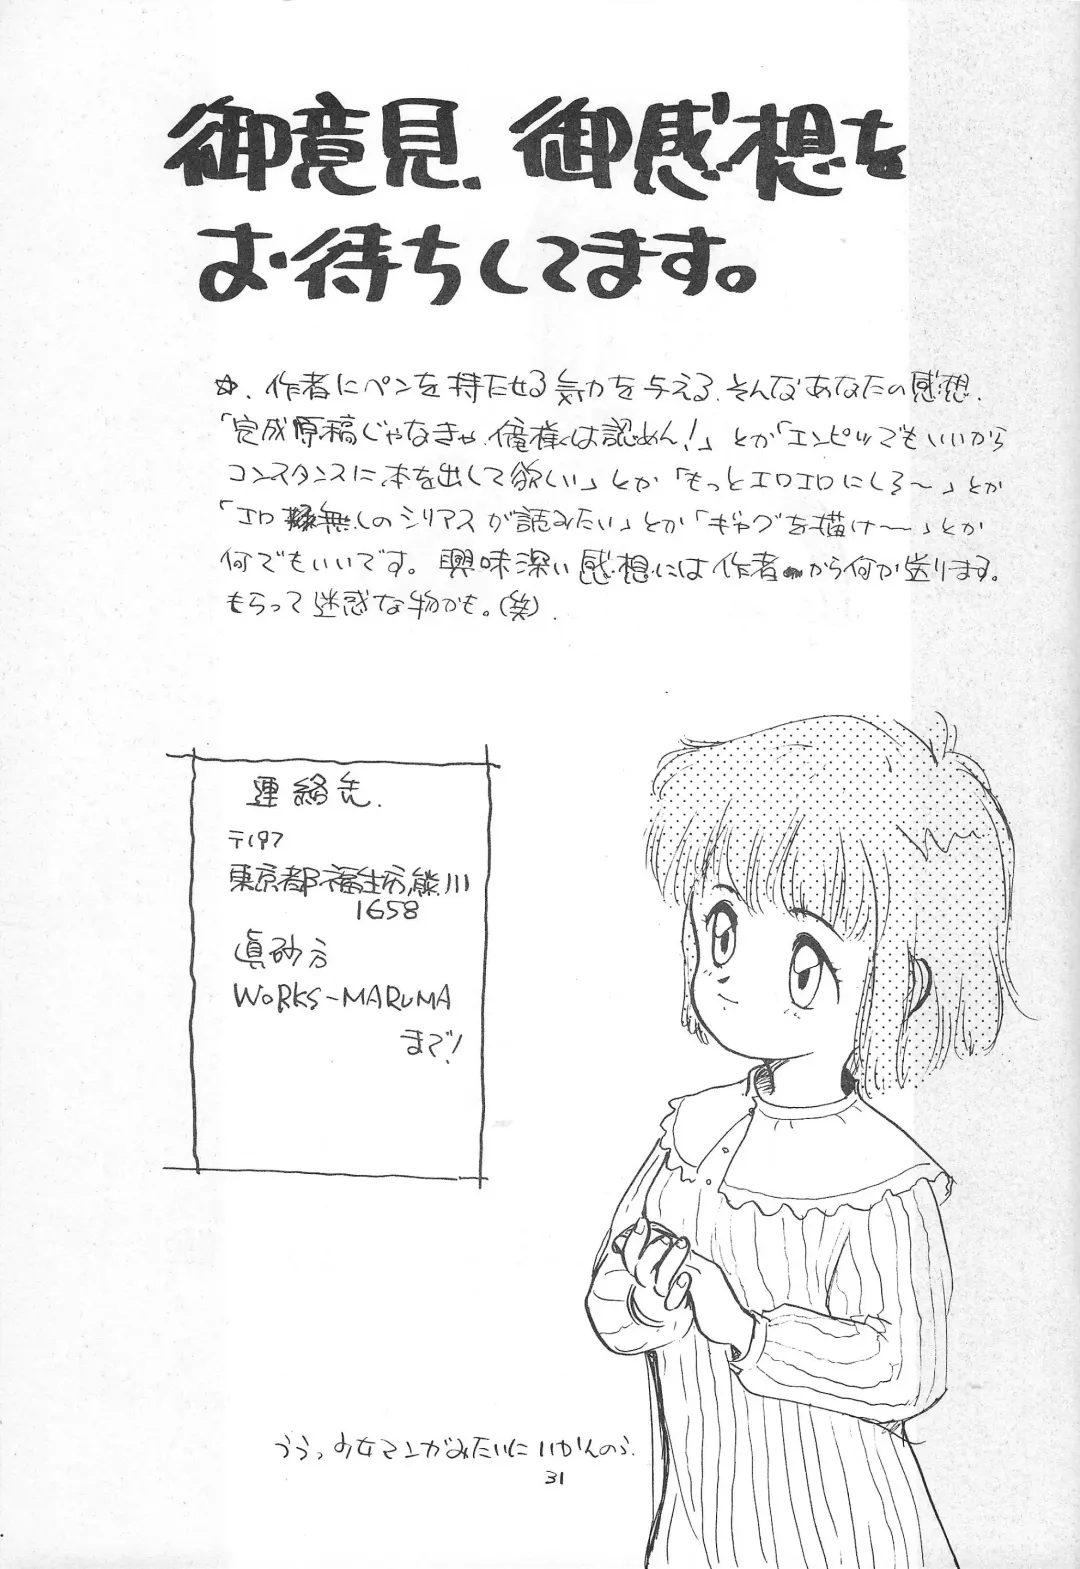 御意見、御感想を
お待ちしてます。
☆、作者にペンを持たせる気力を与える、そんなあなたの感想、
「完成原稿じゃなきゃ、俺様は認めん!」とか「エンピツでもいいから
コンスタンスに本を出して欲しい」とか「もっとエロエロにしろ〜」とか
「エロ無しのシリアスが読みたい」とか「ギャグを描け〜〜」とか
何でもいいです。興味深い感想には作者から何か送ります。
もらって迷惑な物かも。(笑).
連絡先.
〒197
東京都福生市熊川
1658
眞砂方
WORKS-MARUMA
まで!
ううっ少女マンガみたいにいかんのう.
31